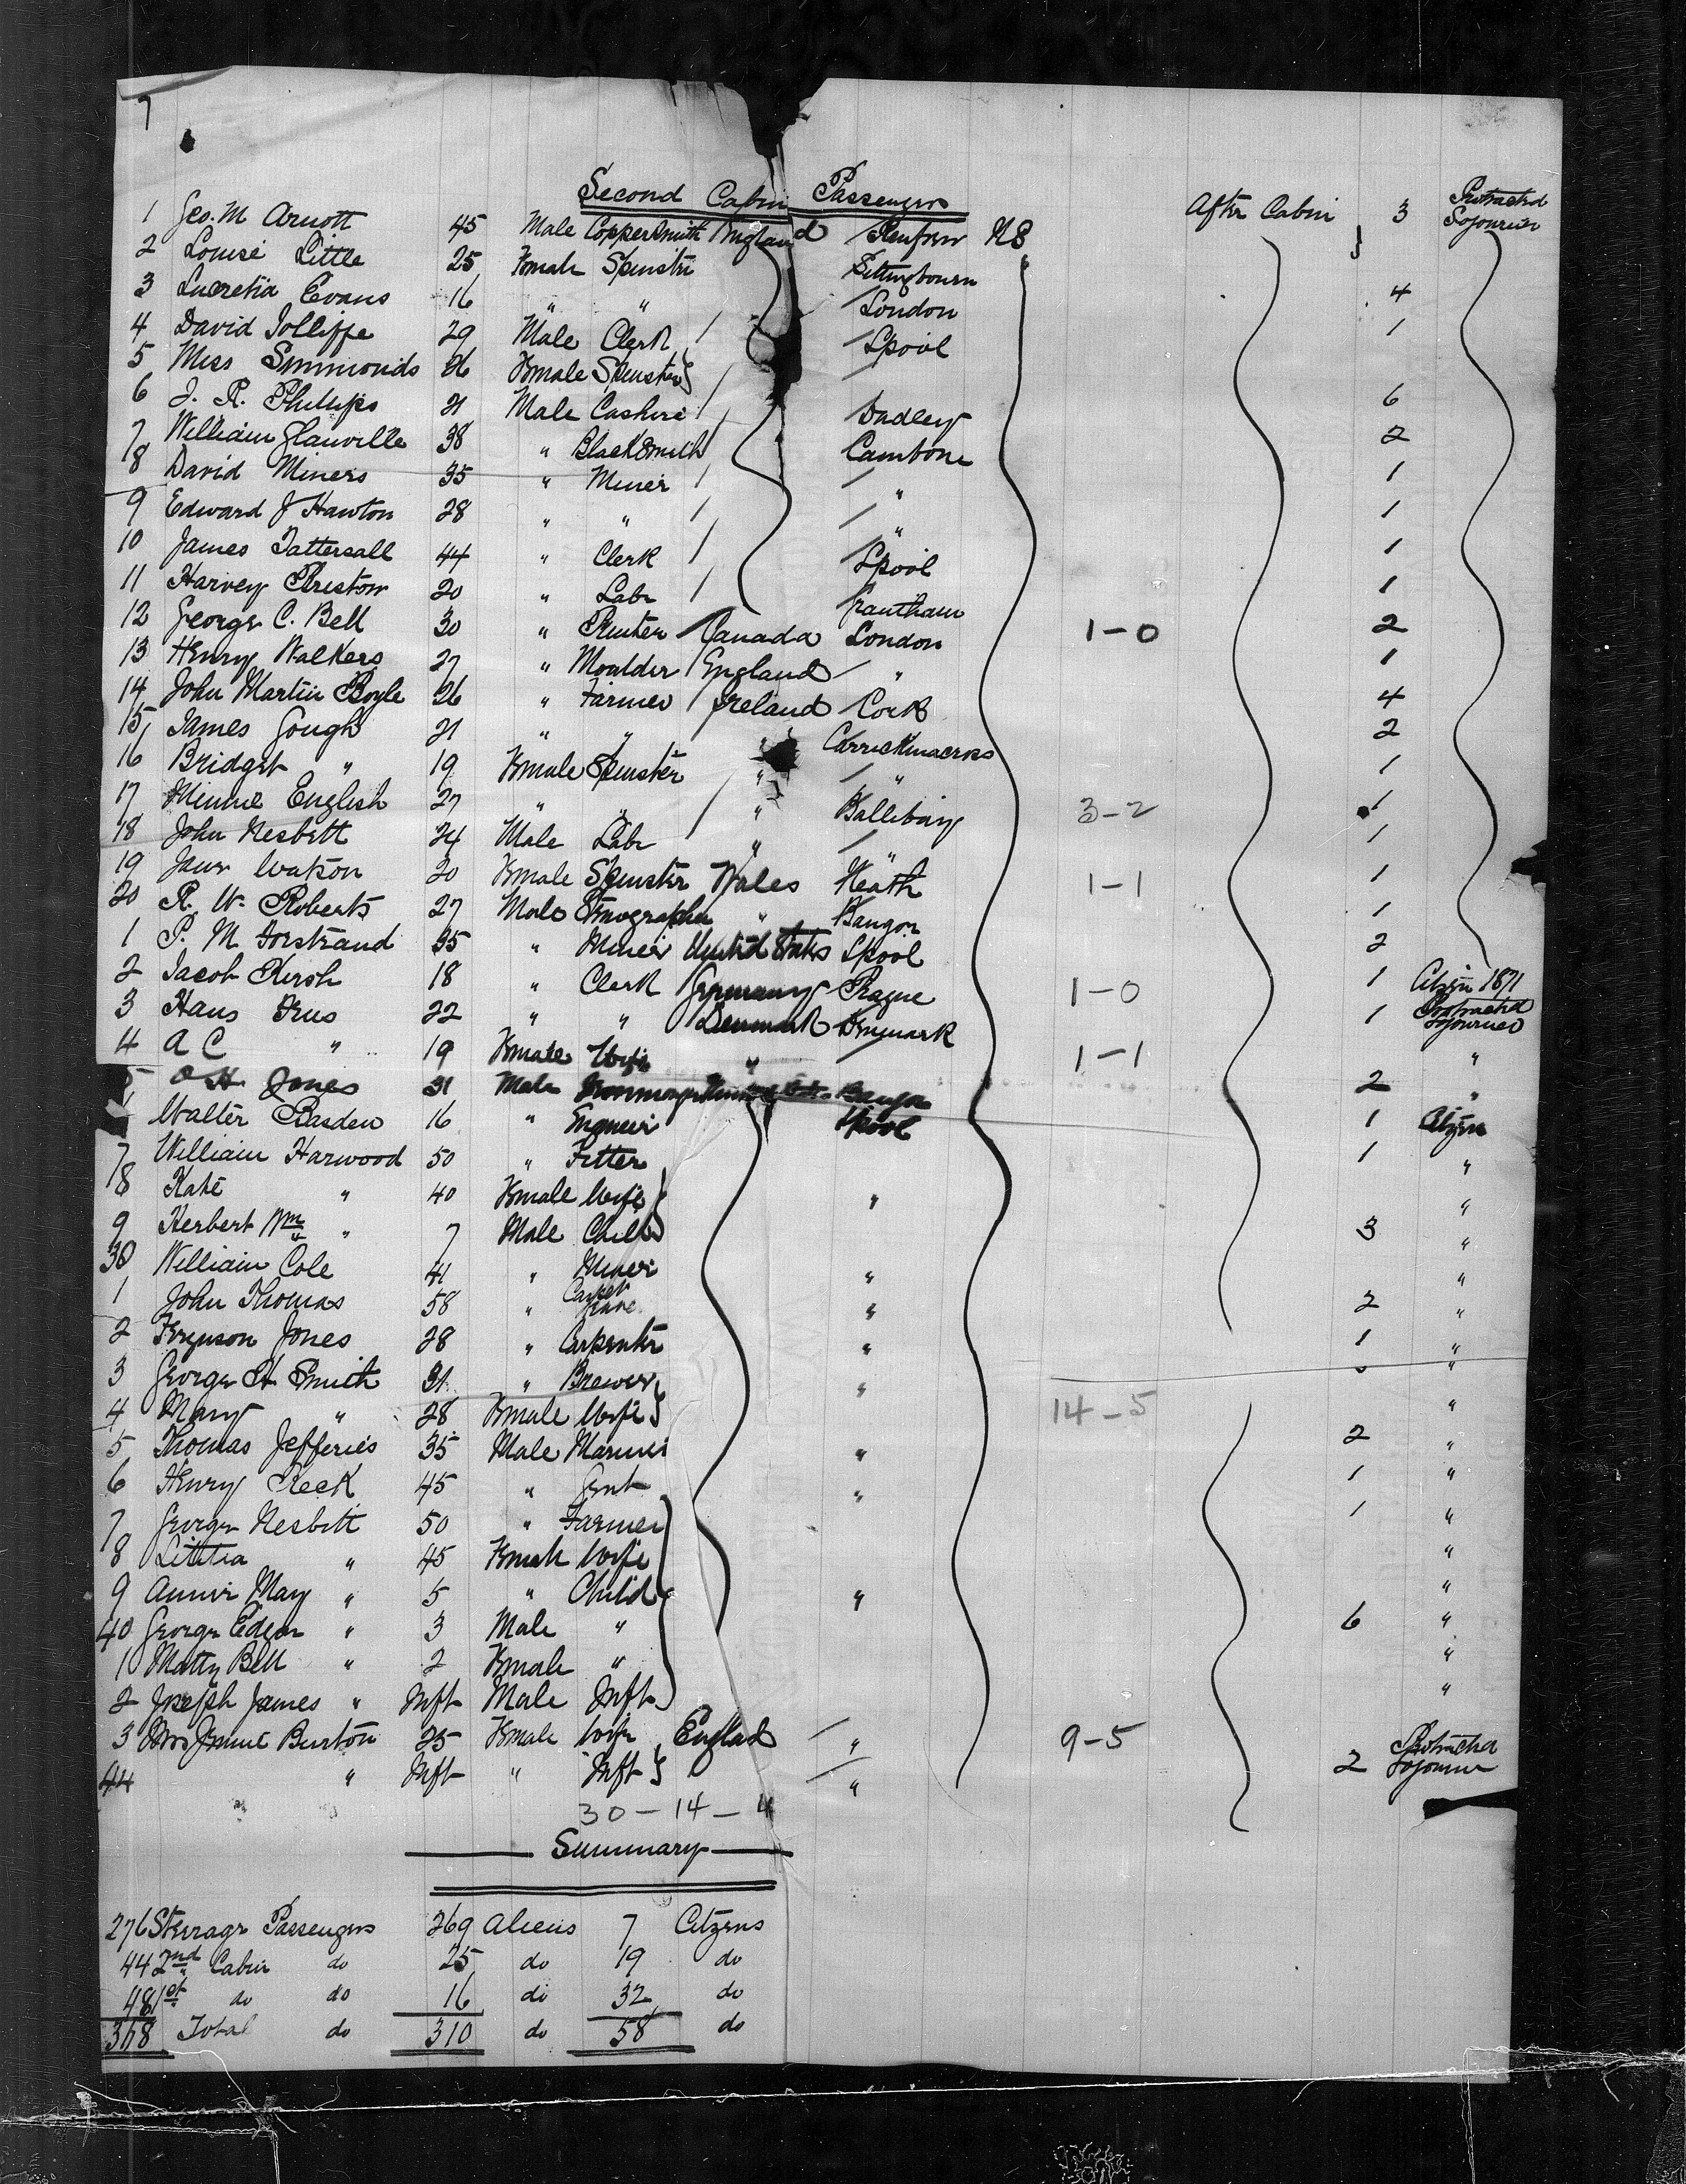 7
Second Cabin Passengers
1 Geo. M Arnott 45 Male Coppersmith England Renfrew NB After Cabin 3 Protracted Sojourner
2 Louise Little 25 Female Spinster Sittingbourn
3 Lucretia Evans 16 " " London 4
4 David Jolliffe 29 Male Clerk Lpool 1
5 Miss Simmonids 26 Female Spinster
6 J. R. Phillips 21 Male Cashire Dudley 6
7 William Glanville 38 " Blacksmith Cambone 2
8 David Miners 35 " Miner " 1
9 Edward J Hawton 28 " " " 1
10 James Tattersall 44 " Clerk Lpool 1
11 Harvey Preston 20 " Labr Grantham 1
12 George C. Bell 30 " Canada London 1-0 2
13 Henry Walkers 27 " Moulder England " 1
14 John Martin Boyle 26 " Farmer Ireland Cork 4
15 James Gough 21 " " " Carrickmacross 2
16 Bridget " 19 Female Spinster " " 1
17 Minnie English 27 " " " Ballibay 3-2 1
18 John Nesbitt 24 Male Labr " " 1
19 Jane Watson 20 Female Spinster Wales Neath 1-1 1
20 R. W. Roberts 27 Male Stenographer " Bangor 1
1 P. M Forstrand 35 " Miner United States Lpool 2
2 Jacob Kersh 18 " Clerk Germany Prague 1-0 1 Citizen 1871
3 Hans Frus 22 " " Denmark Denmark 1 Protracted Sojourner
4 A C " 19 Female Wife " 1-1 "
5 O H Jones 31 Male Bangor 2 "
Walter Basden 16 " Engineer Lpool 1 Citizen
7 William Harwood 50 " Fitter 1 "
8 Kate " 40 Female Wife " "
9 Herbert Wm " 7 Male Child 3 "
30 William Cole 41 " Miner " "
1 John Thomas 58 " Carpet " 2 "
2 Ferguson Jones 28 " Carpenter " 1 "
3 George H Smith 31 " Brewer " "
4 Mary " 28 Female Wife 14-5 "
5 Thomas Jefferies 35 Male Mariner " 2 "
6 Henry Creek 45 " Gent " 1 "
7 George Nesbitt 50 " Farmer 1 "
8 Letitia " 45 Female Wife "
9 Annie May " 5 " Child " "
40 George Edgar " 3 Male " 6 "
1 Matty Bell " 2 Female " "
2 Joseph James " Inft Male Inft "
3 Mrs Jennie Burton 25 Female Wife Englad " 9-5 Protracted
44 " Inft " Inft " 2 Sojourner
30-14-4
Summary
276 Steerage Passengers 269 Aliens 7 Citzens
44 2nd Cabin do 25 do 19 do
48 1st do do 16 do 32 do
368 Total do 310 do 58 do